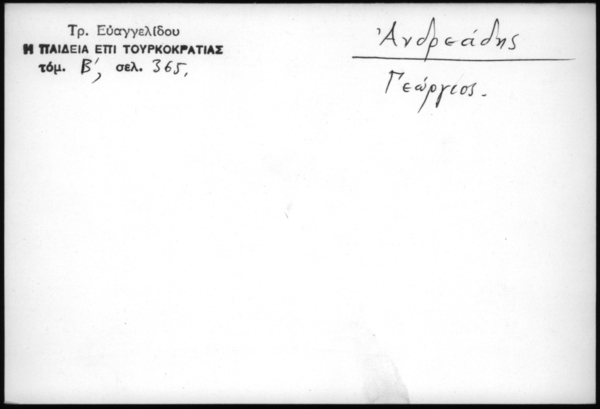 Τρ. Εὐαγγελίδου
Η ΠΑΙΔΕΙΑ ΕΠΙ ΤΟΥΡΚΟΚΡΑΤΙΑΣ
τόμ. Β΄, σελ. 365,
Ἀνδρεάδης
Γεώργιος.